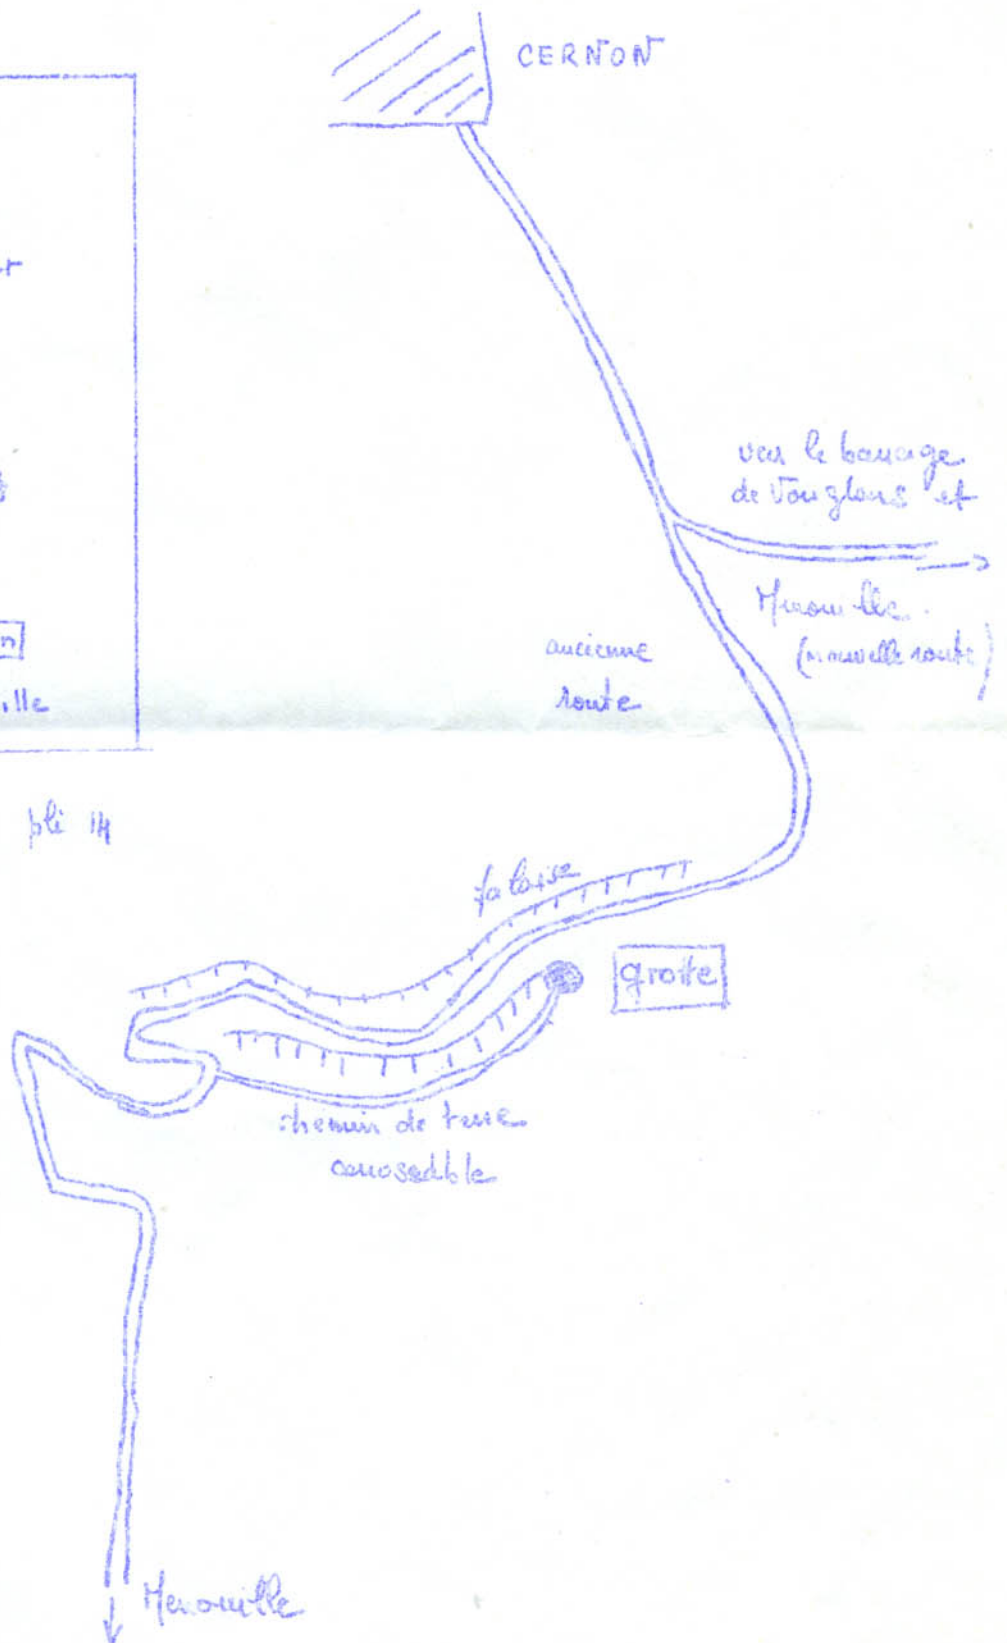 CERNON
vers le barrage
de Vouglans et
Menouille.
(nouvelle route)
ancienne
route
n
ille
pli 14
falaise
grotte
chemin de terre
carrossable
Menouille